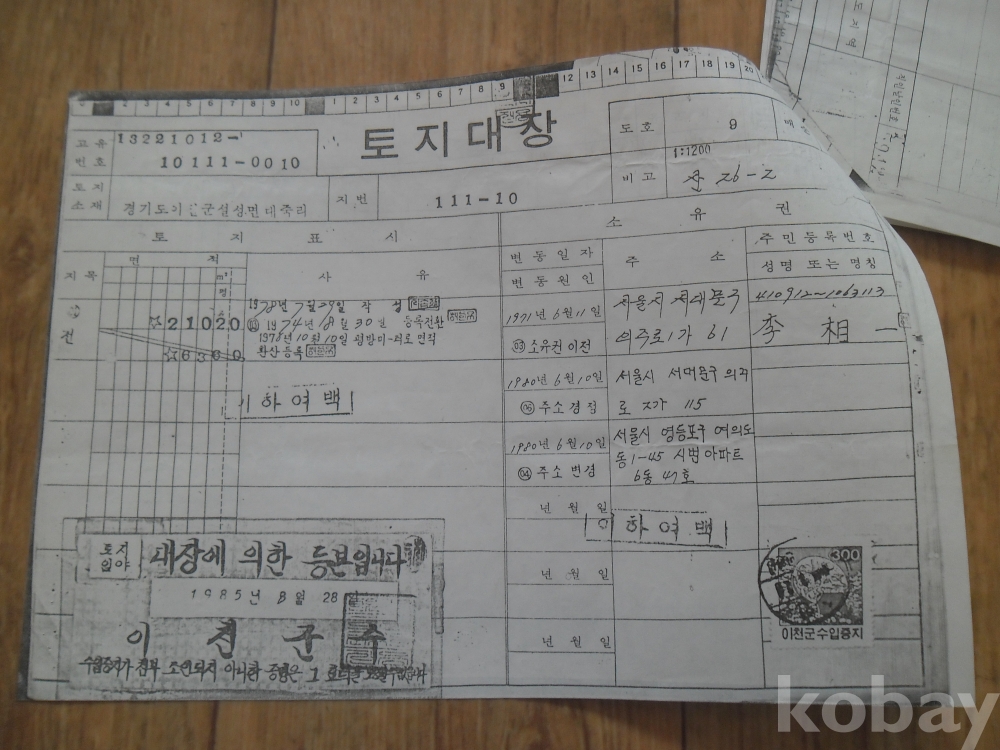 2 3 4 5 6 7 8 9 10 1 2 3 4 5 6 7 8 9 12 13 14 15 16 17 18 19 20
고유
번호
13221012-
10111-0010
토지대장
도호
9
1:1200
비고
토지
소재
경기도이천군설성면대죽리
지번
111-10
토지표시
소유권
지목
면적
m²
평
사유
변동일자
변동원인
주소
주민등록번호
성명 또는 명칭
전
☆21020
☆6360
1978년 7월 29일 작성
1974년 8월 30일 등록전환
1978년 10월 10일 평방미터로 면적
환산등록
하여백
1971년 6월 11일
03 소유권이전
서울시 서대문구
의주로1가 61
410912~1063113
李相一
1980년 6월 10일
서울시 서대문구 의주
115
1980년 6월 10일
04 주소변경
서울시 영등포구 여의도
동 1-45 시범아파트
6동 47호
년 월 일
하여백
년 월 일
년 월 일
토지
임야
대장에 의한 등본입니다
1985년 8월 28일
이천군수
300
이천군수입증지
kobay